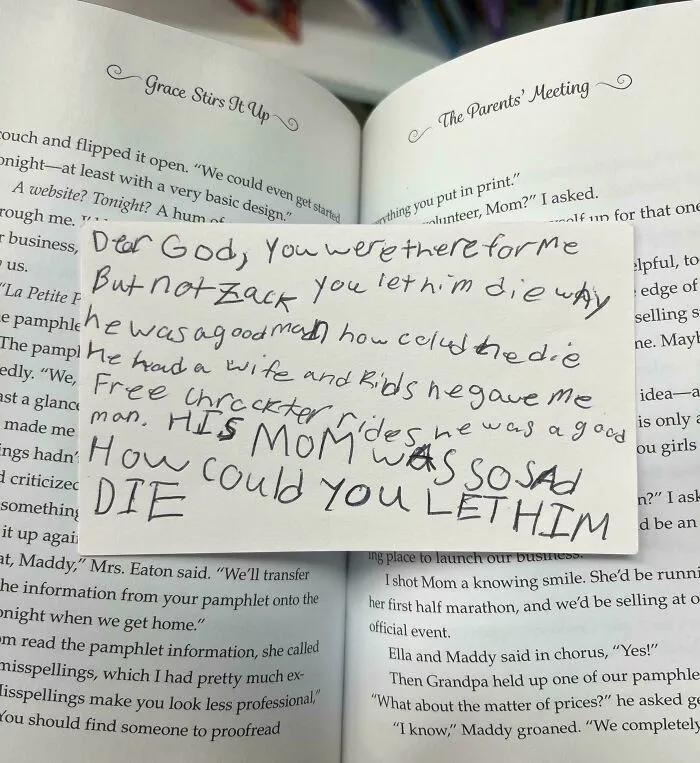 Grace Stirs It Up
couch and flipped it open. "We could even get started
onight—at least with a very basic design."
A website? Tonight? A hum of
rough me.
r business,
us.
"La Petite P
e pamphle
The pampl
edly. "We,
ast a glance
made me
ings hadn'
d criticized
something
it up agai
at, Maddy," Mrs. Eaton said. "We'll transfer
he information from your pamphlet onto the
onight when we get home."
om read the pamphlet information, she called
misspellings, which I had pretty much ex-
Misspellings make you look less professional,"
You should find someone to proofread
Dear God, you were there for me
But not Zack you let him die why
he was a good man how colud he die
He had a wife and kids he gave me
Free chrackter rides he was a good
man. HIS MOM WAS SO SAD
How could you LET HIM
DIE
The Parents' Meeting
erything you put in print."
olunteer, Mom?" I asked.
self up for that one
elpful, to
edge of
selling s
ne. Mayb
idea—a
is only a
ou girls
n?" I ask
d be an
ing place to launch our business.
I shot Mom a knowing smile. She'd be runni
her first half marathon, and we'd be selling at o
official event.
Ella and Maddy said in chorus, "Yes!"
Then Grandpa held up one of our pamphle
"What about the matter of prices?" he asked ge
"I know," Maddy groaned. "We completely